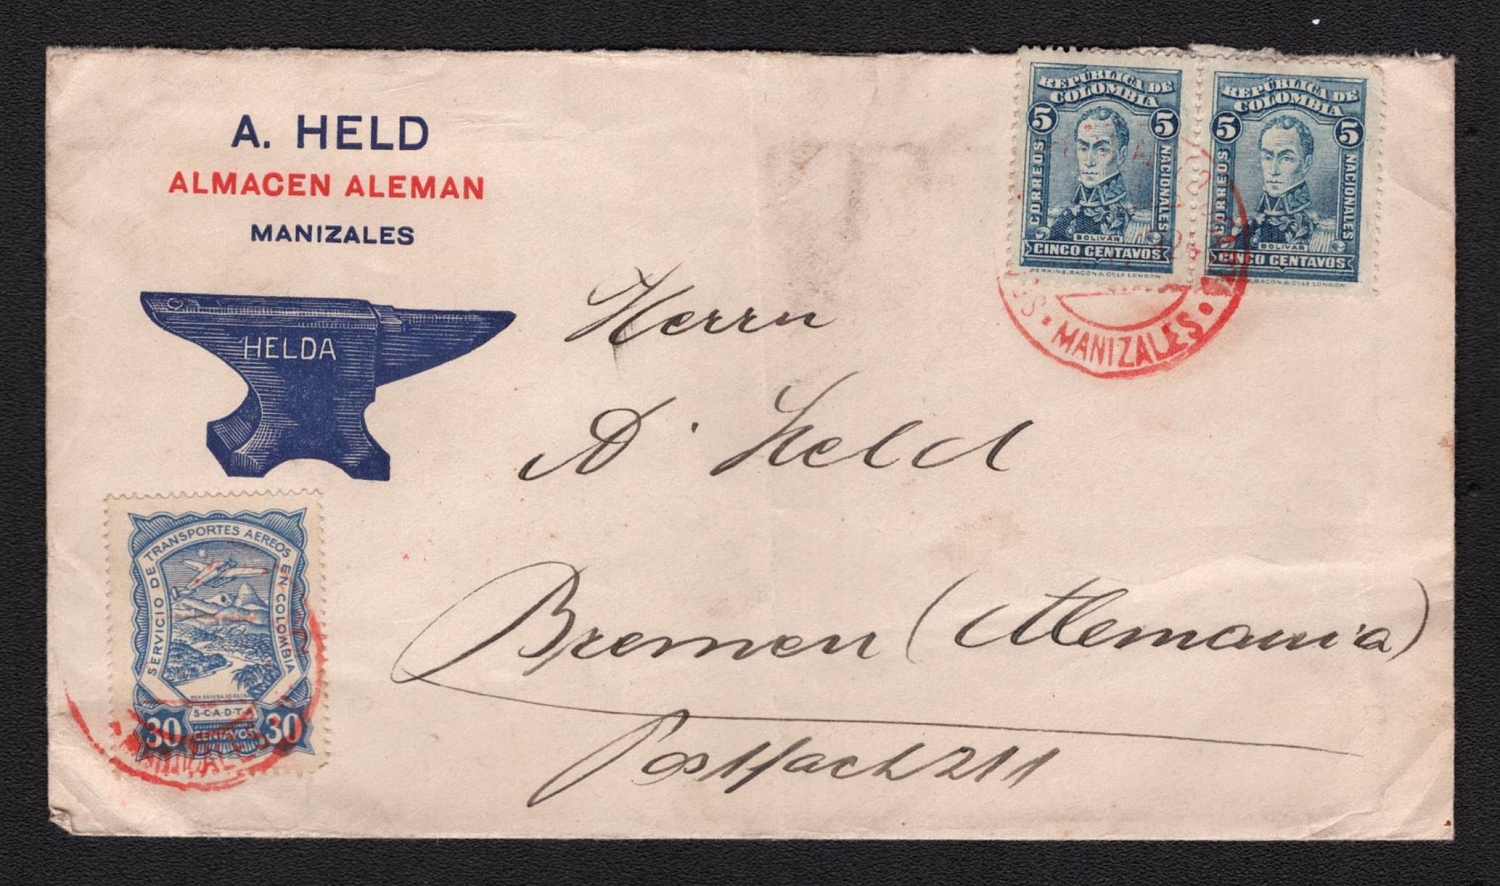 A. HELD
ALMACEN ALEMAN
MANIZALES
HELDA
REPÚBLICA DE
COLOMBIA
5 5
CORREOS
NACIONALES
BOLIVAR
CINCO CENTAVOS
PERKINS, BACON & CO LD LONDON
REPÚBLICA DE
COLOMBIA
5 5
CORREOS
NACIONALES
BOLIVAR
CINCO CENTAVOS
BACON & CO LD LONDON
MANIZALES
Herrn
A. Held
Bremen (Alemania)
Postfach 211
SERVICIO DE TRANSPORTES AEREOS EN COLOMBIA
S·C·A·D·T·A
30 CENTAVOS 30